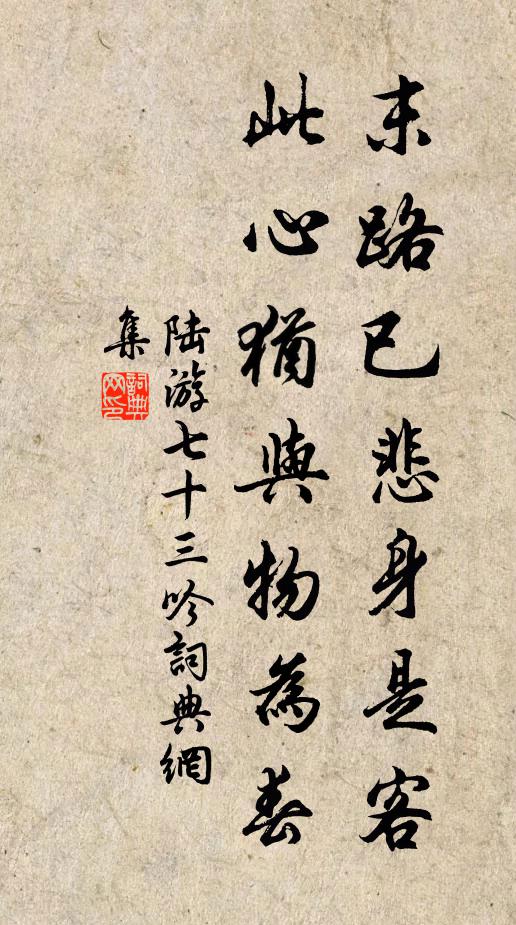 末路已悲身是客
此心猶與物為春
陸游七十三吟詞典網
集
詞典
网印